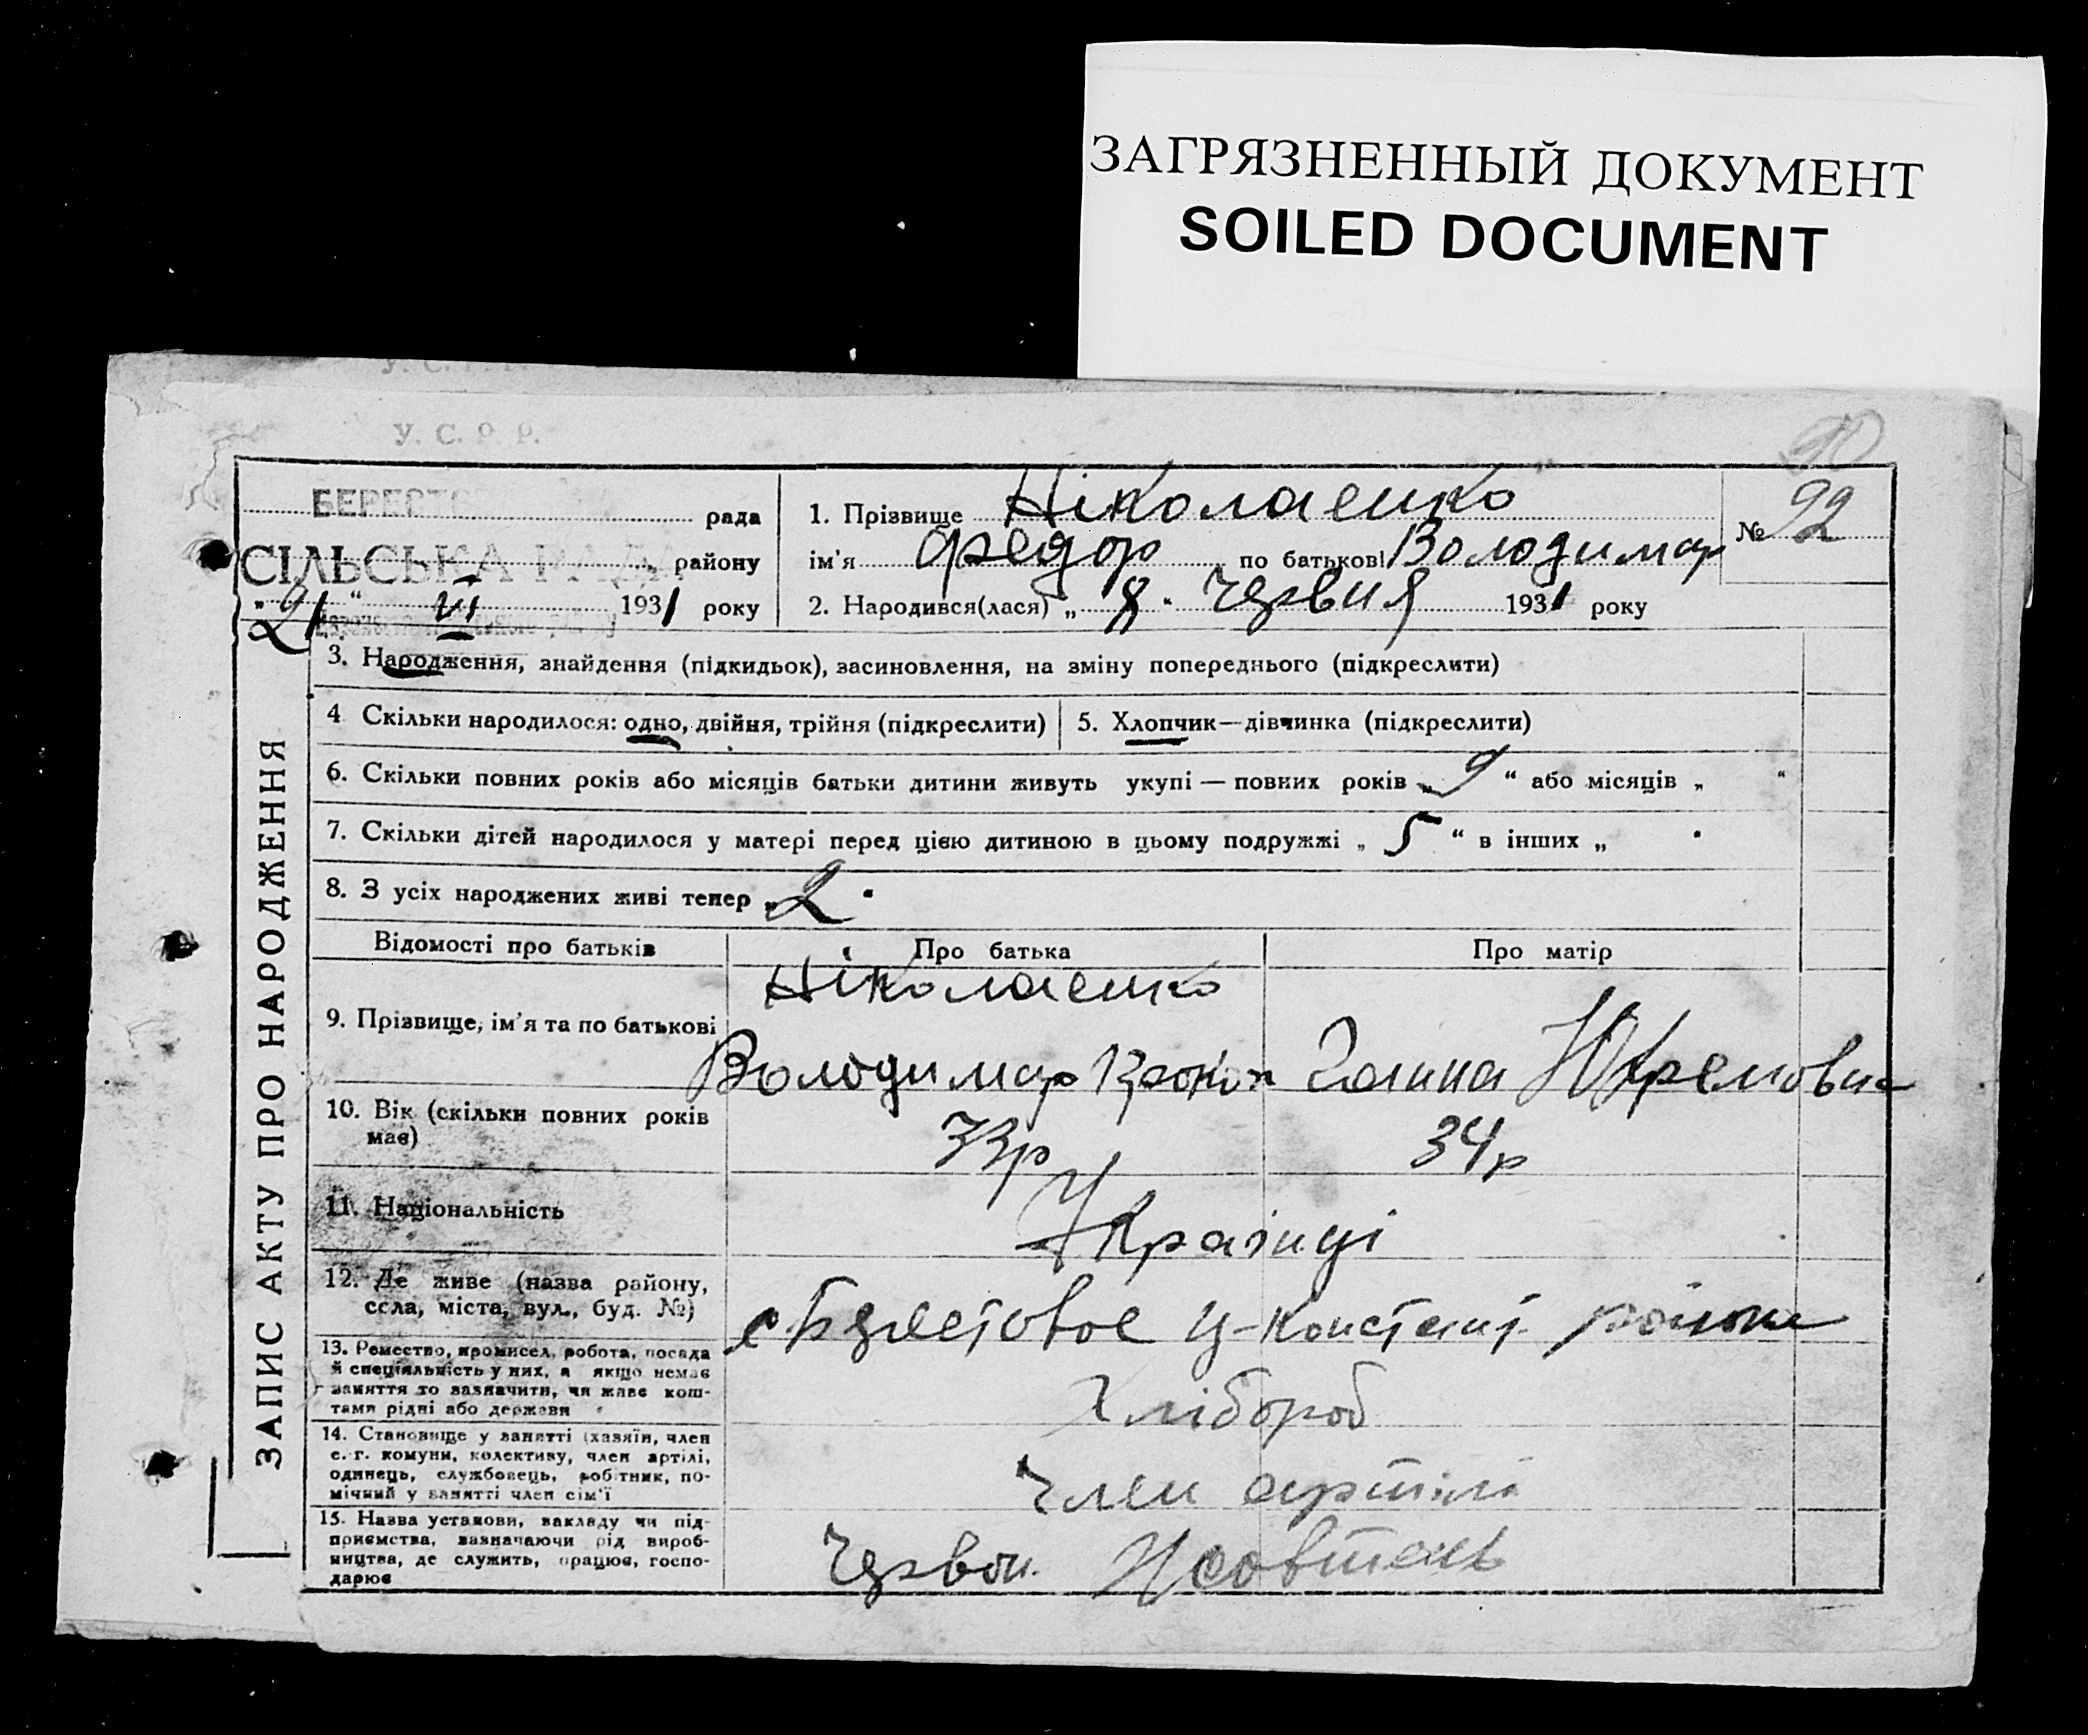 ЗАГРЯЗНЕННЫЙ ДОКУМЕНТ
SOILED DOCUMENT
У. С. Р. Р.
90
рада
СІЛЬСЬКА РАДА
району
„21“ VI 1931 року
1. Прізвище Ніколаенко
№ 92
ім'я Федор по батькові Володимар
2. Народився(лася) „8“ Червня 1931 року
ЗАПИС АКТУ ПРО НАРОДЖЕННЯ
3. Народження, знайдення (підкидьок), засиновлення, на зміну попереднього (підкреслити)
4 Скільки народилося: одно, двійня, трійня (підкреслити)
5. Хлопчик—дівчинка (підкреслити)
6. Скільки повних років або місяців батьки дитини живуть укупі — повних років „9“ або місяців „ “
7. Скільки дітей народилося у матері перед цією дитиною в цьому подружжі „5“ в інших „
8. З усіх народжених живі тепер „2“
Відомості про батьків
Про батька
Про матір
9. Прізвище, ім'я та по батькові
Ніколаенко
Володимар Прокоп
Ганна Юхремовна
10. Вік (скільки повних років
має)
33р
34р
11. Національність
Українці
12. Де живе (назва району,
села, міста, вул., буд. №)
с Берестовое Ч-Констант. района
13. Ремество, промисел, робота, посада
й спеціяльність у них, а якщо немає
заняття то зазначити, чи живе кош-
тами рідні або держави
Хлібороб
14. Становище у занятті (хазяїн, член
с.-г. комуни, колективу, член артілі,
одинець, службовець, робітник, по-
мічний у занятті член сім'ї
Член артілі
15. Назва установи, закладу чи під-
приємства, зазначаючи рід вироб-
ництва, де служить, працює, госпо-
дарює
Червон. Жовтень